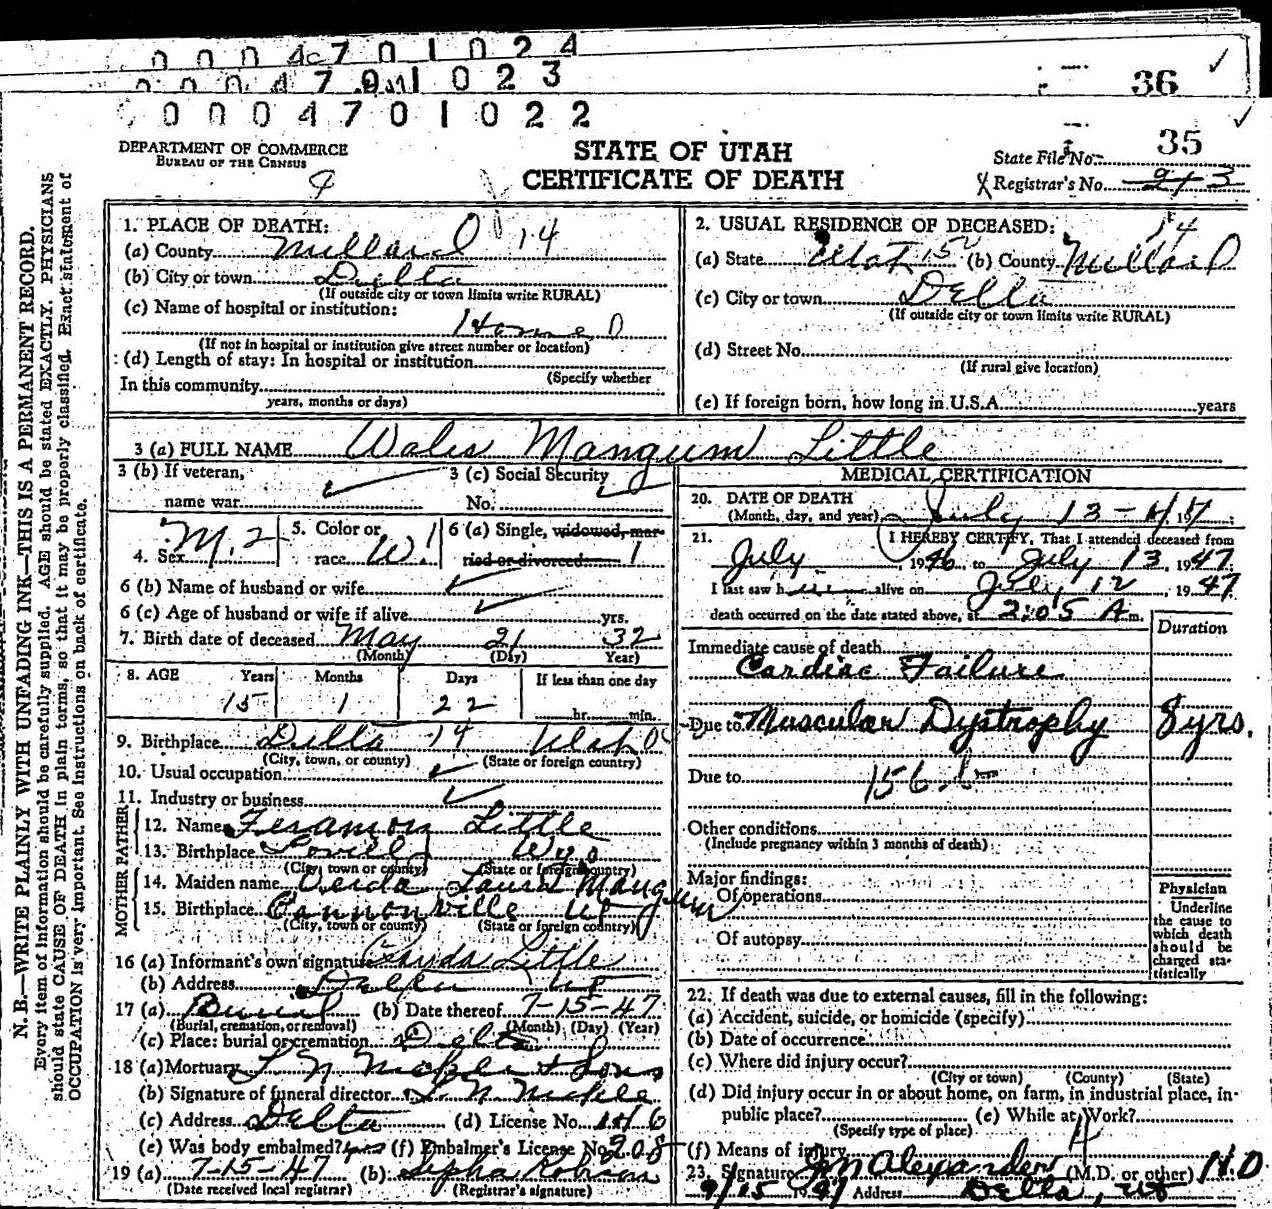 0 0 0 4 7 0 1 0 2 4
0 0 0 4 7 0 1 0 2 3
36
0 0 0 4 7 0 1 0 2 2
35
DEPARTMENT OF COMMERCE
BUREAU OF THE CENSUS
STATE OF UTAH
CERTIFICATE OF DEATH
State File No.
Registrar's No.
N. B.—WRITE PLAINLY WITH UNFADING INK—THIS IS A PERMANENT RECORD.
Every item of information should be carefully supplied. AGE should be stated EXACTLY. PHYSICIANS
should state CAUSE OF DEATH in plain terms, so that it may be properly classified. Exact statement of
OCCUPATION is very important. See instructions on back of certificate.
1. PLACE OF DEATH:
(a) County Millard 14
(b) City or town Delta
(If outside city or town limits write RURAL)
(c) Name of hospital or institution:
Home
(If not in hospital or institution give street number or location)
(d) Length of stay: In hospital or institution
(Specify whether
In this community
years, months or days)
2. USUAL RESIDENCE OF DECEASED: 14
(a) State Utah 15 (b) County Millard
(c) City or town Delta
(If outside city or town limits write RURAL)
(d) Street No.
(If rural give location)
(e) If foreign born, how long in U.S.A. years
3 (a) FULL NAME Wales Mangum Little
3 (b) If veteran,
name war
3 (c) Social Security
No.
4. Sex M. 2
5. Color or
race W. 1
6 (a) Single, widowed, mar-
ried or divorced 1
6 (b) Name of husband or wife
6 (c) Age of husband or wife if alive yrs.
7. Birth date of deceased May 21 32
(Month) (Day) Year)
8. AGE Years Months Days If less than one day
15 1 22 hr. min.
9. Birthplace Delta 14 Utah
(City, town, or county) (State or foreign country)
10. Usual occupation
11. Industry or business
FATHER
12. Name Feramon Little
13. Birthplace Lovell Wyo
(City, town or county) (State or foreign country)
MOTHER
14. Maiden name Laura Mangum
15. Birthplace Cannonville Ut
(City, town or county) (State or foreign country)
16 (a) Informant's own signature Little
(b) Address Delta Ut
17 (a) Burial (b) Date thereof 7-15-47
(Burial, cremation, or removal) (Month) (Day) (Year)
(c) Place: burial or cremation Delta
18 (a) Mortuary & Sons
(b) Signature of funeral director
(c) Address Delta (d) License No. 146
(e) Was body embalmed? yes (f) Embalmer's License No. 208
19 (a) 7-15-47 (b)
(Date received local registrar) (Registrar's signature)
MEDICAL CERTIFICATION
20. DATE OF DEATH
(Month, day, and year) July 13
21. I HEREBY CERTIFY, That I attended deceased from
July 1946 to July 13, 1947
I last saw h alive on July 12, 1947
death occurred on the date stated above, at 2:05 A m.
Duration
Immediate cause of death
Cardiac Failure
Due to Muscular Dystrophy 8 yrs.
Due to
156
Other conditions
(Include pregnancy within 3 months of death)
Major findings:
Of operations
Of autopsy
Physician
Underline
the cause to
which death
should be
charged sta-
tistically
22. If death was due to external causes, fill in the following:
(a) Accident, suicide, or homicide (specify)
(b) Date of occurrence
(c) Where did injury occur?
(City or town) (County) (State)
(d) Did injury occur in or about home, on farm, in industrial place, in-
public place? (e) While at Work?
(Specify type of place)
(f) Means of injury
23. Signature Alexander (M.D. or other) M.D
Address Delta, Ut